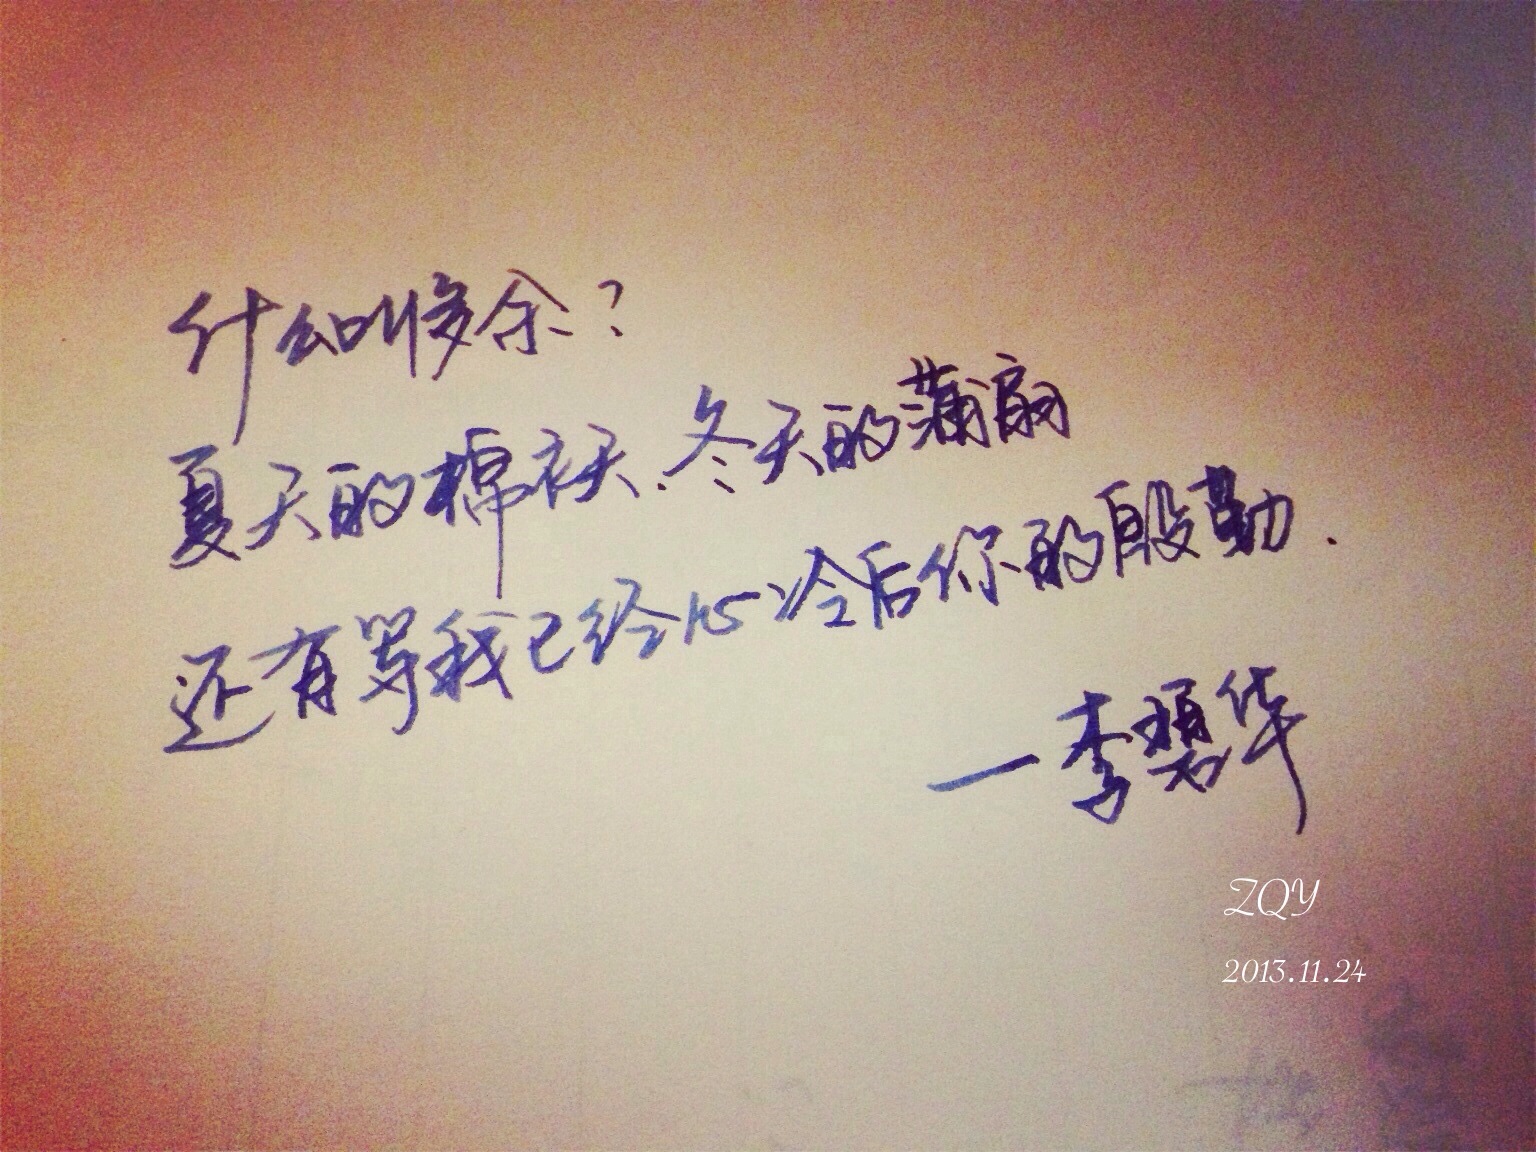 什么叫多余？
夏天的棉袄、冬天的蒲扇
还有等我已经心冷后你的殷勤.
—李碧华
ZQY
2013.11.24